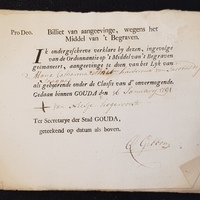 Pro Deo. Billiet van aangeevinge, wegens het
Middel van 't Begraven.
IK ondergeschreve verklare by deezen, ingevolge
van de Ordonnantie op 't Middel van 't Begraven
geëmaneert, aangeevinge te doen van het Lyk van
Maria Catharina
als gehoorende onder de Classis van onvermogende.
Gedaan binnen GOUDA den 16 January 1791
Ter Secretarye der Stad GOUDA,
geteekend op datum als boven.